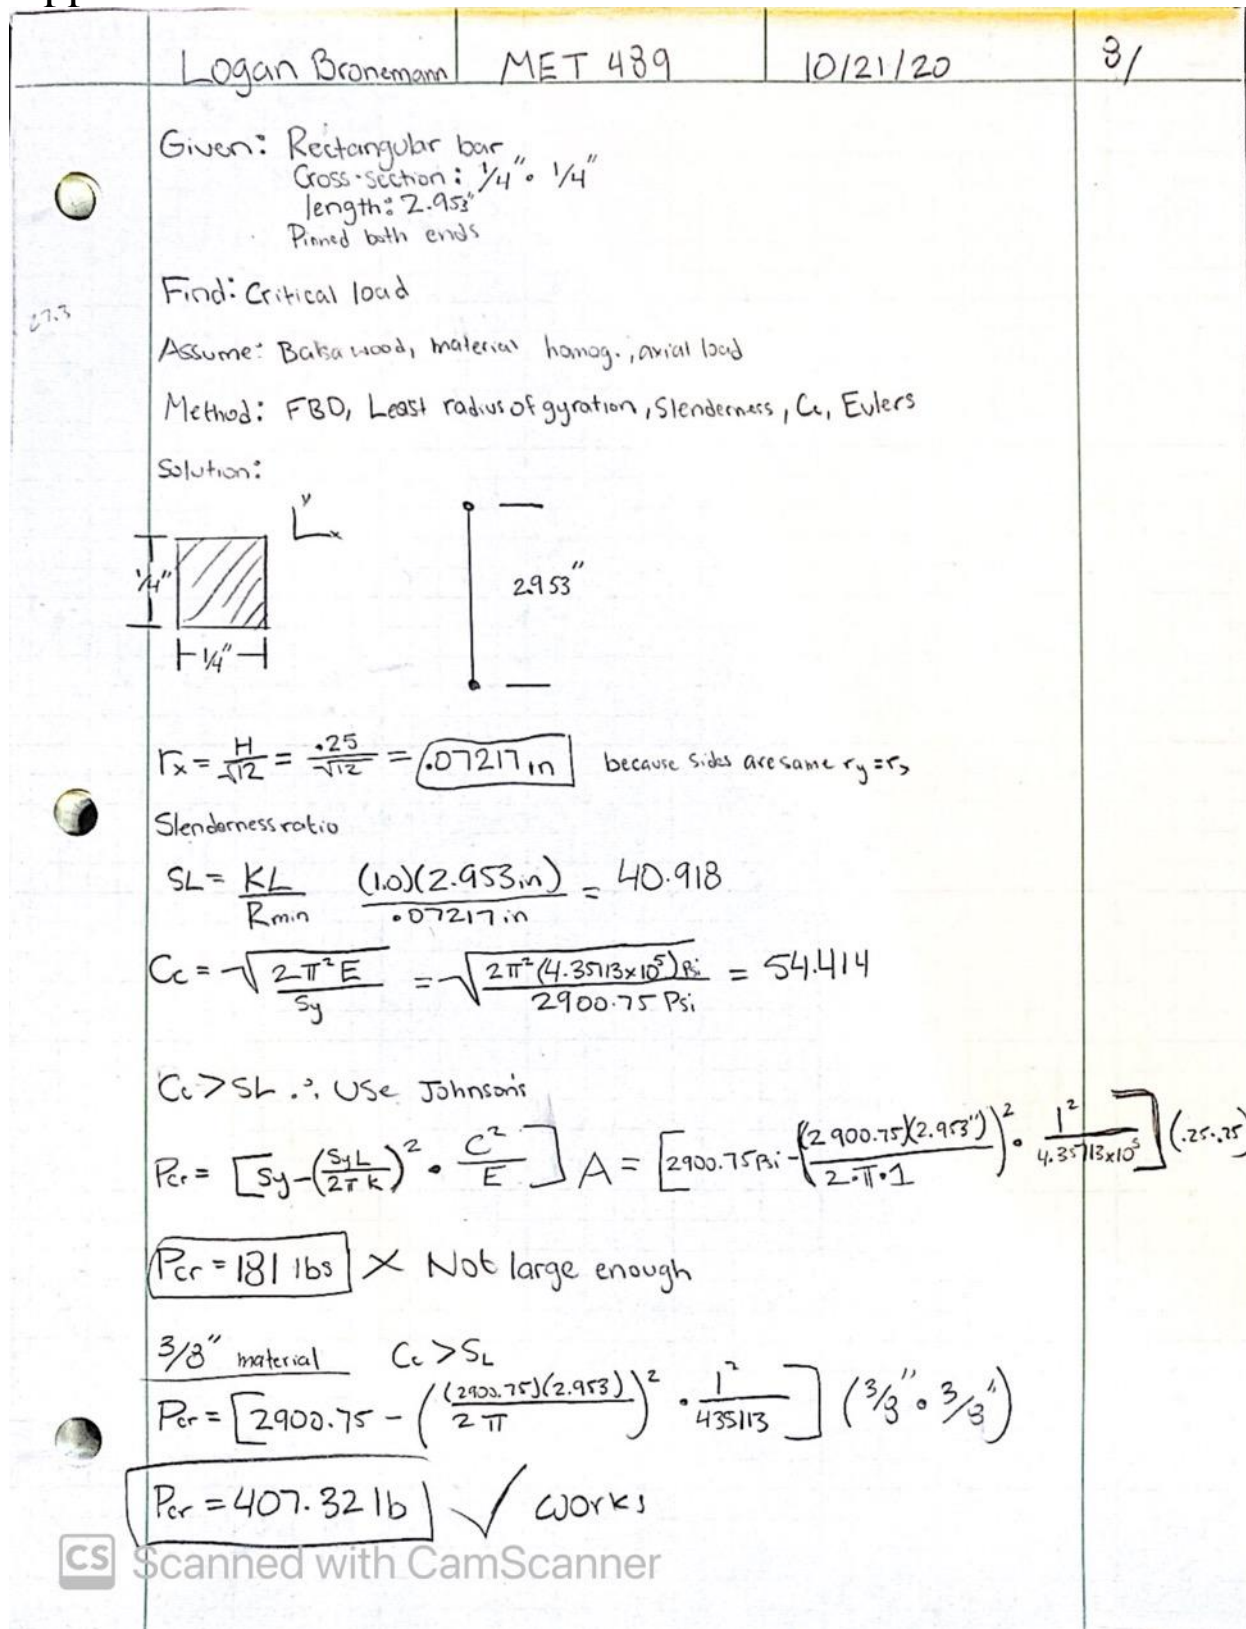 Logan Bronemann MET 489 10/21/20 8/
Given: Rectangular bar
Cross-section: 1/4" • 1/4"
length: 2.953"
Pinned both ends
Find: Critical load
27.3
Assume: Balsa wood, material homog., axial load
Method: FBD, Least radius of gyration, Slenderness, Cc, Eulers
Solution:
y
x
1/4"
2.953"
1/4"
rx = H/√12 = .25/√12 = .07217 in because sides are same ry = rx
Slenderness ratio
SL = KL/Rmin (1.0)(2.953in)/.07217in = 40.918
Cc = √(2π²E/Sy) = √(2π²(4.35113x10⁵)Psi/2900.75 Psi) = 54.414
Cc > SL ∴ Use Johnson's
Pcr = [Sy-(SyL/2πk)² • C²/E] A = [2900.75Psi-((2900.75)(2.953")/2•π•1)² • 1²/4.35113x10⁵] (.25•.25)
Pcr = 181 lbs X Not large enough
3/8" material Cc > SL
Pcr = [2900.75 - ((2900.75)(2.953)/2π)² • 1²/435113] (3/8" • 3/8")
Pcr = 407.32 lb ✓ works
CS Scanned with CamScanner